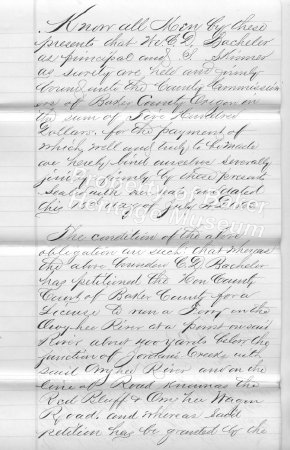 Know all Men by these
presents that We C.D. Bachelor
as principal and J. Skinner
as surety are held and firmly
bound unto the County Commission
ers of Baker County Oregon in
the sum of Five Hundred
Dollars. for the payment of
which well and truly to be made
we hereby bind ourselve severally
jointly firmly by these presents
Sealed with our seals and dated
this day of July
The condition of the above
obligation are such; that whereas
the above bounden C.D. Bachelor
has petitioned the Hon County
Court of Baker County for a
License to run a Ferry on the
Owyhee River at a point on said
River about 400 yards below the
junction of Jordans Creek with
said Owyhee River and on the
line of Road known as the
Red Bluff & Owyhee Wagon
Road. and whereas said
petition has be granted by the
Property of Baker
Heritage Museum